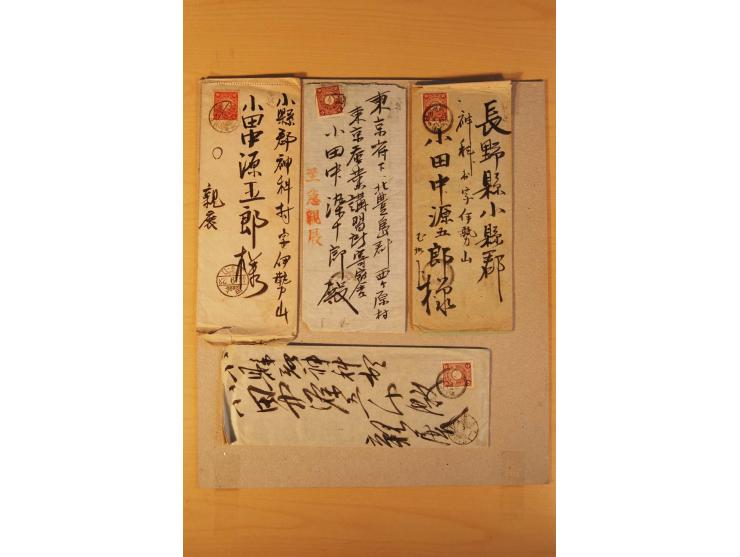 長野縣小縣郡
神科村字伊勢山
小田中源五郎様
東京府下北豊島郡西ヶ原村
東京蚕業講習所寄宿舎
小田中
殿
至急親展
小縣郡神科村字伊勢山
小田中源五郎様
親展
小縣郡神科村
小田中源五郎殿
親展